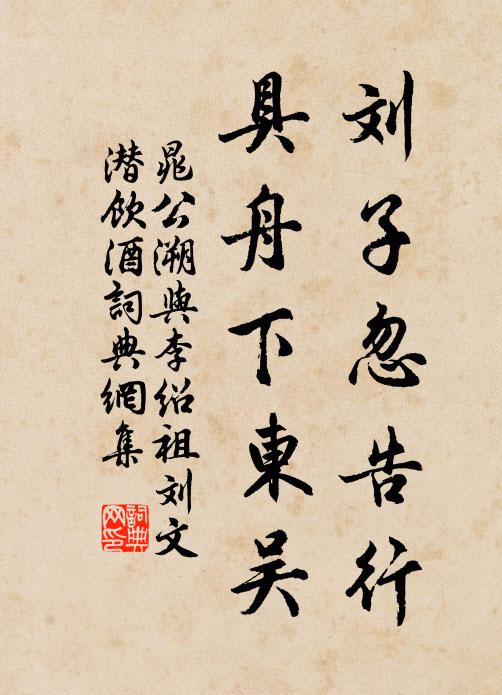 刘子忽告行
具舟下東吴
晁公溯與李绍祖刘文
潜飲酒詞典網集
詞典网印